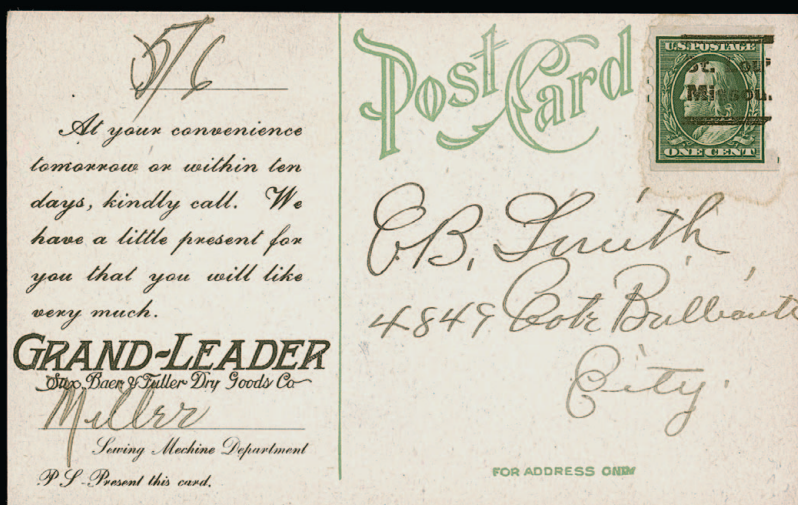 5/6
At your convenience
tomorrow or within ten
days, kindly call. We
have a little present for
you that you will like
very much.
GRAND-LEADER
Stix, Baer & Fuller Dry Goods Co
Miller
Sewing Machine Department
P S-Present this card.
Post Card
U.S. POSTAGE
St.
Missou.
ONE CENT
B. Smith
4849 Cote Brilliante
City.
FOR ADDRESS ONLY